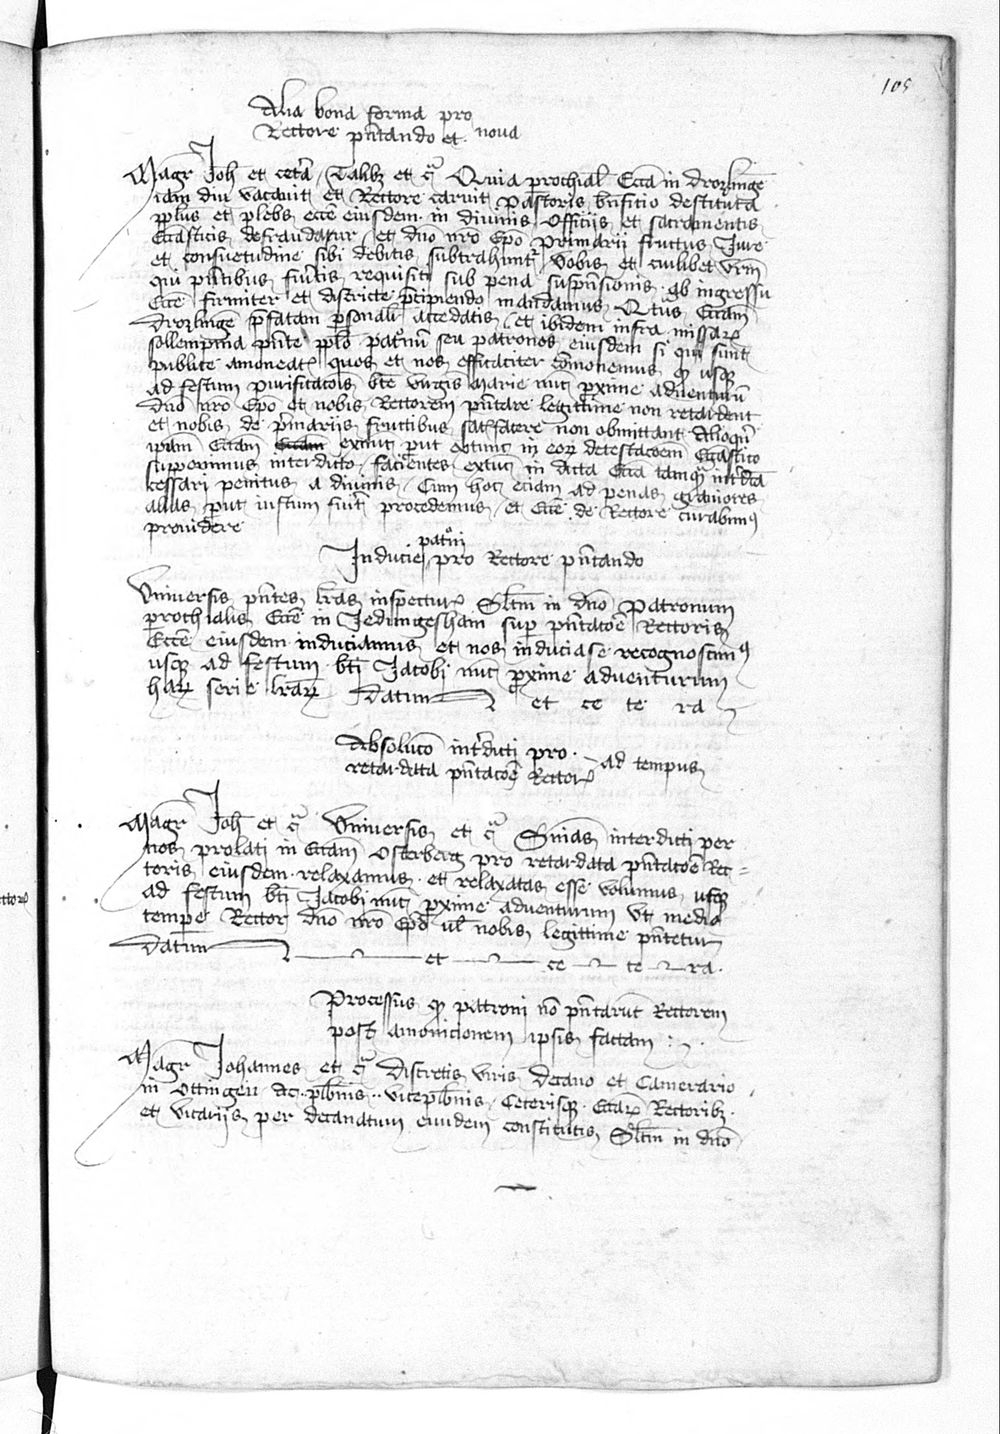 105
Alia bona forma pro
Rectore pn̄tando et nova
Magr̄ Joh̄ et cetˀa Talibꝫ et cᷓ Quia prochial̄ Ecc̄a in Drozlingē
iam diu vacavit et Rectore caruit pastoris bn̄fitio destituta
pplus et plebs ecc̄e eiusdem in divinis officijs et sacramentis
Ecc̄asticis defraudatur et dn̄o nr̄o Ep̄o primarii fructus Jure
et consuetudine sibi debitis subtrahunt᷑ vobis et cuilibet vr̄m
qui pn̄tibus fuˀitis requisiti sub pena suspn̄sionis ab ingressu
Ecc̄e firmiter et districte p̄cipiendo mandamus Qtus Ecc̄am
Drozlingē p̄fatam psonalr̄ accedatis et ibidem infra missaꝝ
sollempnia pn̄te pplo patˀnū seu patronos eiusdem si qui sunt
publice amoneatꝭ quos et nos efficaciter cōmonemus qꝫ usqꝫ
ad festum purificatōis bt̄e virginis Marie nūc pxime adventurū
Dn̄o nr̄o Ep̄o et nobis Rectorem pn̄tare legittime non retardent
et nobis de p̄marijs fructibus satꝭfacere non obmittant Alioqn̄
ipam Ecc̄am Ecc̄am exnūc put extunc in eoꝝ detestacōem Ecc̄astico
supponimus interdicto facientes extūc in dicta Ecc̄a tamqꝫ intˀdc̄a
cessari penitus a divinis Cum hoc eciam ad penas graviores
alias put iustum fuˀit procedemus et Ecc̄e de Rectore curabimꝰ
providere
patˀni
Inducie pro Rectore pn̄tando
Vniversis pn̄tes lr̄as inspecturꝭ Sl̄tm in dn̄o Patronum
prochialis Ecc̄e in Jedingeshain sup pn̄tacōe Rectoris
Ecc̄e eiusdem induciamus et nos induciasse recognoscimꝰ
usqꝫ ad festum bt̄i Jacobi nūc pxime adventurum
haꝝ serie lr̄aꝝ Datum et ce te ra
Absolucō intˀdicti pro
retardata pn̄tacōe Rectorꝭ ad tempus
Magr̄ Joh̄ et cᷓ Vniversis et cᷓ Sn̄ias interdicti per
nos prolatꝭ in Ecc̄am Osterberg pro retardata pn̄tacōe Rec=
toris eiusdem relaxamus et relaxatas esse volumus usqꝫ
ad festum bt̄i Jacobi nūc pxime adventurum Vt medio
tempe Rector dn̄o nr̄o Ep̄o vl̄ nobis legittime pn̄tetur
Datum et ce te ra
Processus qꝫ patroni nō pn̄tarūt Rectorem
post amonicionem ipsis factam
Magr̄ Johannes et cᷓ Discretis viris Decano et Camerario
in Ottingen Ac plb̄nis viceplb̄nis Ceterisqꝫ Ecc̄aꝝ Rectoribꝫ
et vicarijs per decanatum eundem constitutis Sl̄tm in dn̄o